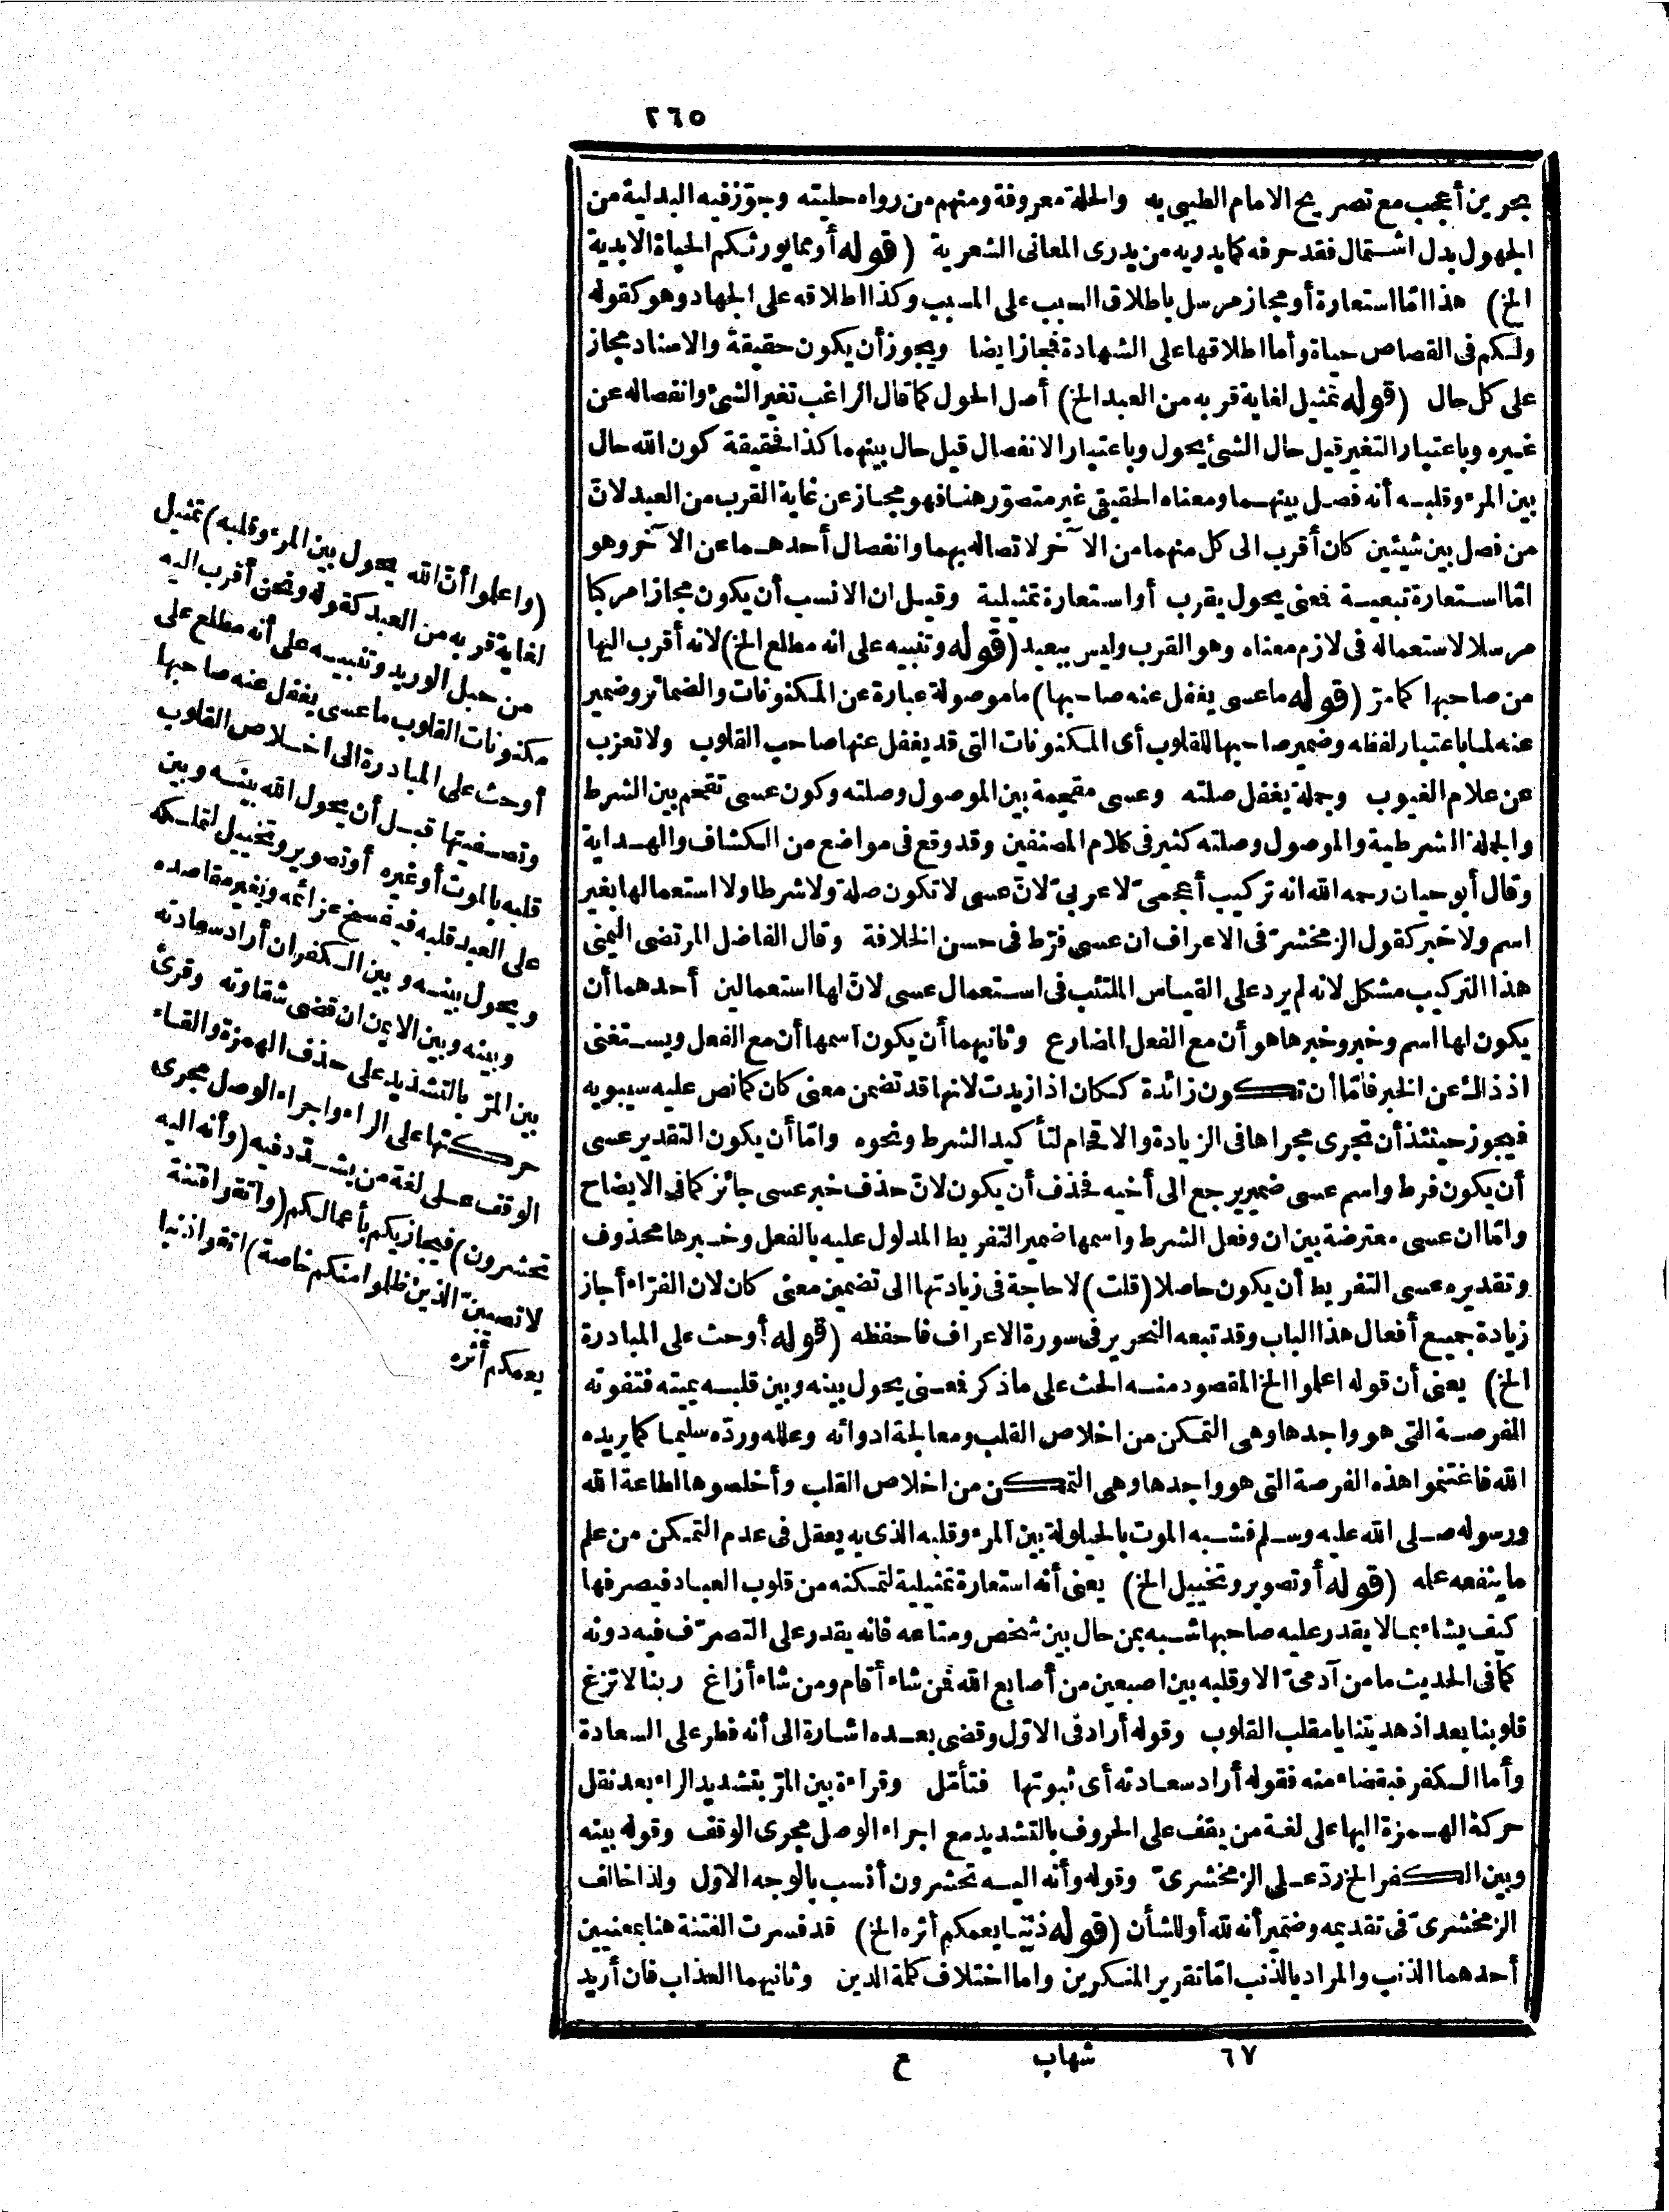 ٢٦٥
بجرير من أعجب مع تصريح الامام الطيبى به والحلة معروفة ومنهم من رواه حليته وجوّز فيه البدلية من
المجهول بدل اشتمال فقد حرفه كما يدريه من يدرى المعانى الشعرية (قوله أو مما يورثكم الحياة الابدية
الخ) هذا امّا استعارة أو مجاز مرسل باطلاق السبب على المسبب وكذا اطلاقه على الجهاد وهو كقوله
ولكم فى القصاص حياة وأما اطلاقها على الشهادة فمجاز ايضا ويجوز أن يكون حقيقة والاسناد مجاز
على كل حال (قوله تمثيل لغاية قربه من العبد الخ) أصل الحول كما قال الراغب تغير الشئ وانفصاله عن
غيره وباعتبار التغير قيل حال الشئ يحول وباعتبار الانفصال قيل حال بينهما كذا فحقيقة كون الله حال
بين المرء وقلبه أنه فصل بينهما ومعناه الحقيقى غير متصوّر هنا فهو مجاز عن غاية القرب من العبد لانّ
من فصل بين شيئين كان أقرب الى كل منهما من الآخر لاتصاله بهما وانفصال أحدهما عن الآخر وهو
امّا استعارة تبعية فمعنى يحول يقرب أو استعارة تمثيلية وقيل ان الانسب أن يكون مجازا مركبا
مرسلا لاستعماله فى لازم معناه وهو القرب وليس ببعيد (قوله وتنبيه على انه مطلع الخ) لانه أقرب اليها
من صاحبها كما مرّ (قوله ما عسى يغفل عنه صاحبها) ما موصولة عبارة عن المكنونات والضمائر وضمير
عنه لما باعتبار لفظه وضمير صاحبها للقلوب أى المكنونات التى قد يغفل عنها صاحب القلوب ولا تعزب
عن علام الغيوب وجملة يغفل صلته وعسى مقحمة بين الموصول وصلته وكون عسى تقحم بين الشرط
والجملة الشرطية والموصول وصلته كثير فى كلام المصنفين وقد وقع فى مواضع من الكشاف والهداية
وقال أبو حيان رحمه الله انه تركيب أعجمىّ لا عربىّ لانّ عسى لا تكون صلة ولا شرطا ولا استعمالها بغير
اسم ولا خبر كقول الزمخشرىّ فى الاعراف ان عسى فرّط فى حسن الخلافة وقال الفاضل المرتضى اليمنى
هذا التركيب مشكل لانه لم يرد على القياس الملتئب فى استعمال عسى لانّ لها استعمالين أحدهما أن
يكون لها اسم وخبر وخبرها هو أن مع الفعل المضارع وثانيهما أن يكون اسمها أن مع الفعل ويستغنى
اذ ذاك عن الخبر فامّا أن تكون زائدة ككان اذا زيدت لانها قد تضمن معنى كان كما نص عليه سيبويه
فيجوز حينئذ أن تجرى مجراها فى الزيادة والاقحام لتأكيد الشرط ونحوه وامّا أن يكون التقدير عسى
أن يكون فرط واسم عسى ضمير يرجع الى أخيه فحذف أن يكون لانّ حذف خبر عسى جائز كما فى الايضاح
وامّا ان عسى معترضة بين ان وفعل الشرط واسمها ضمير التفريط المدلول عليه بالفعل وخبرها محذوف
وتقديره عسى التفريط أن يكون حاصلا (قلت) لا حاجة فى زيادتها الى تضمين معنى كان لان الفرّاء أجاز
زيادة جميع أفعال هذا الباب وقد تبعه النحرير فى سورة الاعراف فاحفظه (قوله أوحث على المبادرة
الخ) يعنى أن قوله اعلموا الخ المقصود منه الحث على ما ذكر فمعنى يحول بينه وبين قلبه يميته فتفوته
الفرصة التى هو واجدها وهى التمكن من اخلاص القلب ومعالجة ادوائه وعلله وردّه سليما كما يريده
الله فاغتنموا هذه الفرصة التى هو واجدها وهى التمكن من اخلاص القلب وأخلصوها لطاعة الله
ورسوله صلى الله عليه وسلم فشبه الموت بالحيلولة بين المرء وقلبه الذى به يعقل فى عدم التمكن من علم
ما ينفعه علمه (قوله أو تصوير وتخييل الخ) يعنى أنه استعارة تمثيلية لتمكنه من قلوب العباد فيصرفها
كيف يشاء بما لا يقدر عليه صاحبها شبه بمن حال بين شخص ومتاعه فانه يقدر على التصرّف فيه دونه
كما فى الحديث ما من آدمىّ الا وقلبه بين اصبعين من أصابع الله فمن شاء أقام ومن شاء أزاغ ربنا لا تزغ
قلوبنا بعد اذ هديتنا يا مقلب القلوب وقوله أراد فى الاوّل وقضى بعده اشارة الى أنه فطر على السعادة
وأما الكفر فبقضاء منه فقوله أراد سعادته أى ثبوتها فتأمّل وقراءة بين المرّ بتشديد الراء بعد نقل
حركة الهمزة اليها على لغة من يقف على الحروف بالتشديد مع اجراء الوصل مجرى الوقف وقوله بينه
وبين الكفر الخ ردّ على الزمخشرىّ وقوله وأنه اليه تحشرون أنسب بالوجه الاوّل ولذا خالف
الزمخشرىّ فى تقديمه وضمير أنه لله أو للشأن (قوله ذنبا يعمكم أثره الخ) قد فسرت الفتنة هنا بمعنيين
أحدهما الذنب والمراد بالذنب امّا تقرير المنكرين واما اختلاف كلمة الدين وثانيهما العذاب فان أريد
(واعلموا أنّ الله يحول بين المرء وقلبه) تمثيل
لغاية قربه من العبد كقوله ونحن أقرب اليه
من حبل الوريد وتنبيه على أنه مطلع على
مكنونات القلوب ما عسى يغفل عنه صاحبها
أوحث على المبادرة الى اخلاص القلوب
وتصفيتها قبل أن يحول الله بينه وبين
قلبه بالموت أو غيره أو تصوير وتخييل لتملكه
على العبد قلبه فيفسخ عزائمه ويغير مقاصده
ويحول بينه وبين الكفر ان أراد سعادته
وبينه وبين الايمن ان قضى شقاوته وقرئ
بين المرّ بالتشديد على حذف الهمزة والقاء
حركتها على الراء واجراء الوصل مجرى
الوقف على لغة من يشدد فيه (وأنه اليه
تحشرون) فيجازيكم بأعمالكم (واتقوا فتنة
لا تصيبنّ الذين ظلموا منكم خاصة) اتقوا ذنبا
يعمكم أثره
٦٧ شهاب ع